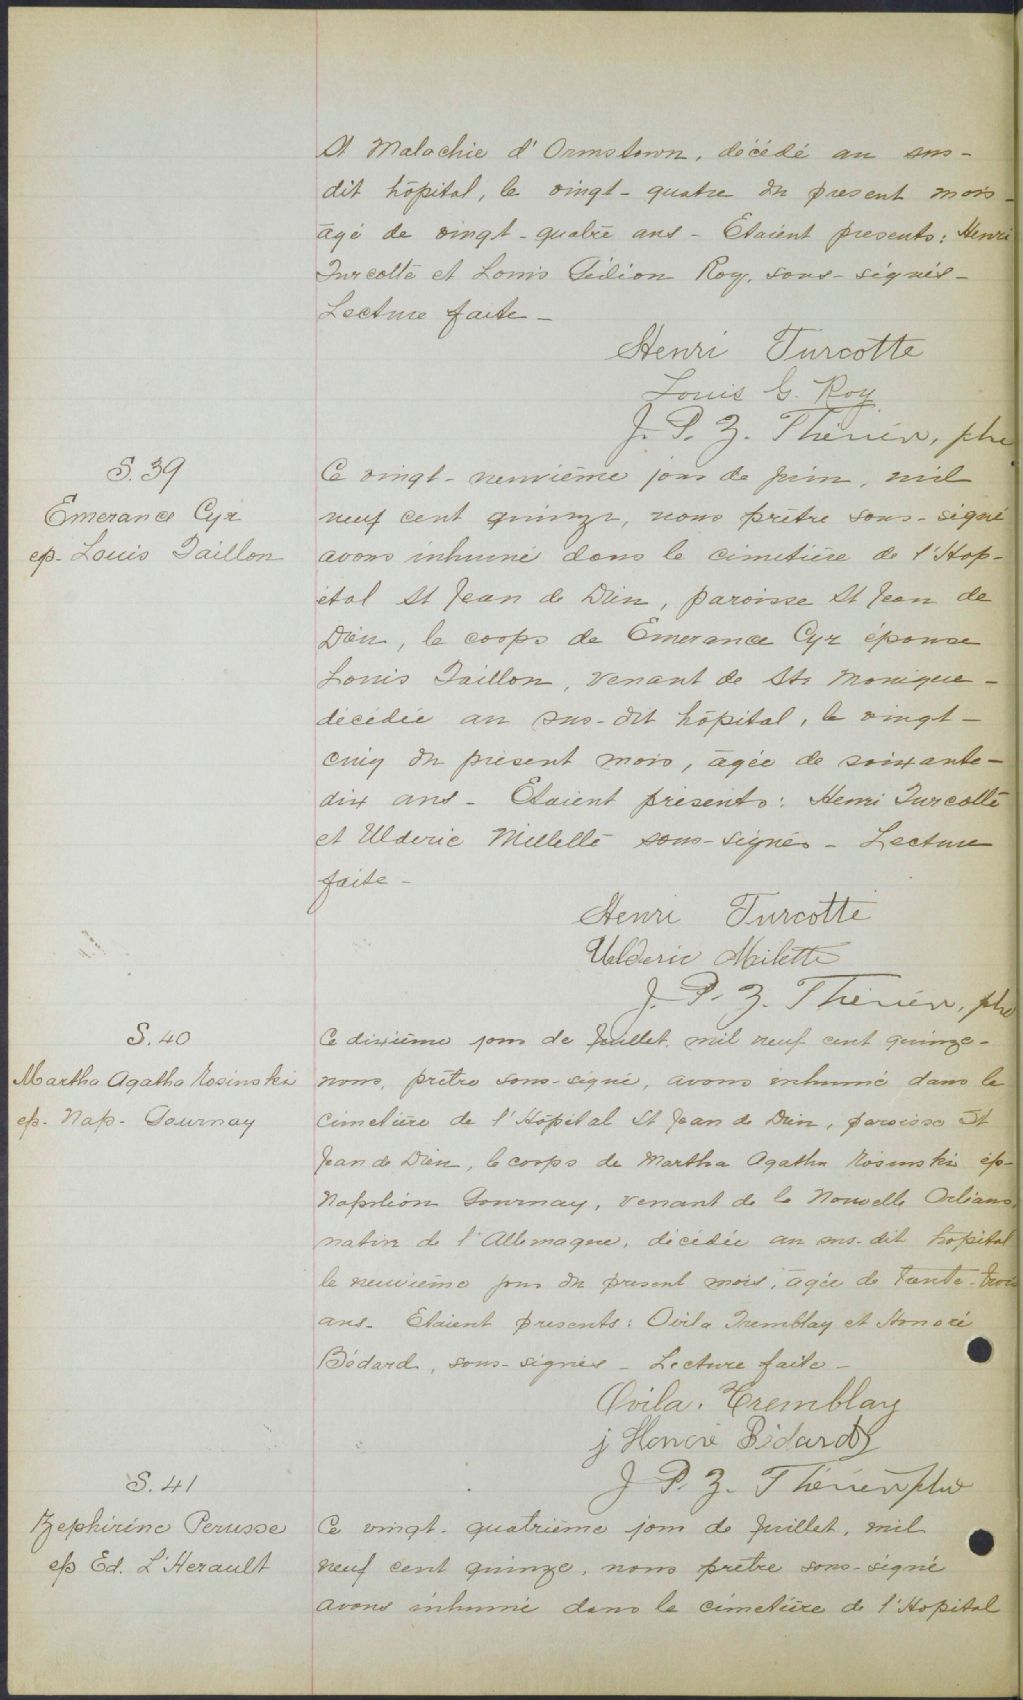 St Malachie d'Ormstown, décédé au sus-
dit hôpital, le vingt-quatre du present mois-
âgé de vingt-quatre ans - Etaient presents: Henri
Turcotte et Louis Gédéon Roy, sous-signés-
Lecture faite -
Henri Turcotte
Louis G. Roy
J. P. Z. Thérien, ptre
S. 39
Emerance Cyr
ep. Louis Taillon
Ce vingt-neuvième jour de juin, mil
neuf cent quinze, nous prêtre sous-signé
avons inhumé dans le cimetière de l'Hop-
ital St Jean de Dieu, paroisse St Jean de
Dieu, le corps de Emerance Cyr épouse
Louis Taillon, venant de Ste Monique -
décédée au sus-dit hôpital, le vingt-
cinq du présent mois, âgée de soixante-
dix ans - Etaient présents: Henri Turcotte
et Ulderic Millette sous-signés - Lecture
faite -
Henri Turcotte
Uldéric Milette
J. P. Z. Thérien, ptre
S. 40
Martha Agatha Rosinski
ep. Nap. Gournay
Ce dixième jour de Juillet, mil neuf cent quinze-
nous, prêtre sous-signé, avons inhumé dans le
cimetière de l'Hôpital St Jean de Dieu, paroisse St
Jean de Dieu, le corps de Martha Agatha Rosinski ép-
Napoléon Gournay, venant de la Nouvelle Orléans,
native de l'Allemagne, décédée au sus-dit hôpital
le neuvième jour du present mois, âgée de trente-trois
ans. Etaient presents: Ovila Tremblay et Honoré
Bédard, sous-signés - Lecture faite -
Ovila. Tremblay
j Honoré Bédard
J P. Z. Thérien ptre
S. 41
Zephirine Perusse
ep Ed. L'Herault
Ce vingt-quatrième jour de Juillet, mil
neuf cent quinze, nous prêtre sous-signé
avons inhumé dans le cimetière de l'Hopital